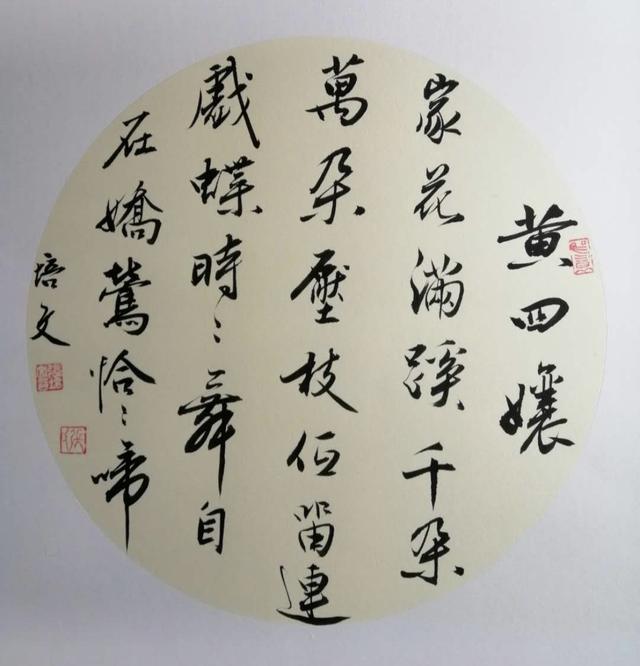 黄四孃
家花滿蹊千朵
萬朵壓枝低留連
戲蝶時〻舞自
在嬌鶯恰〻啼
培文